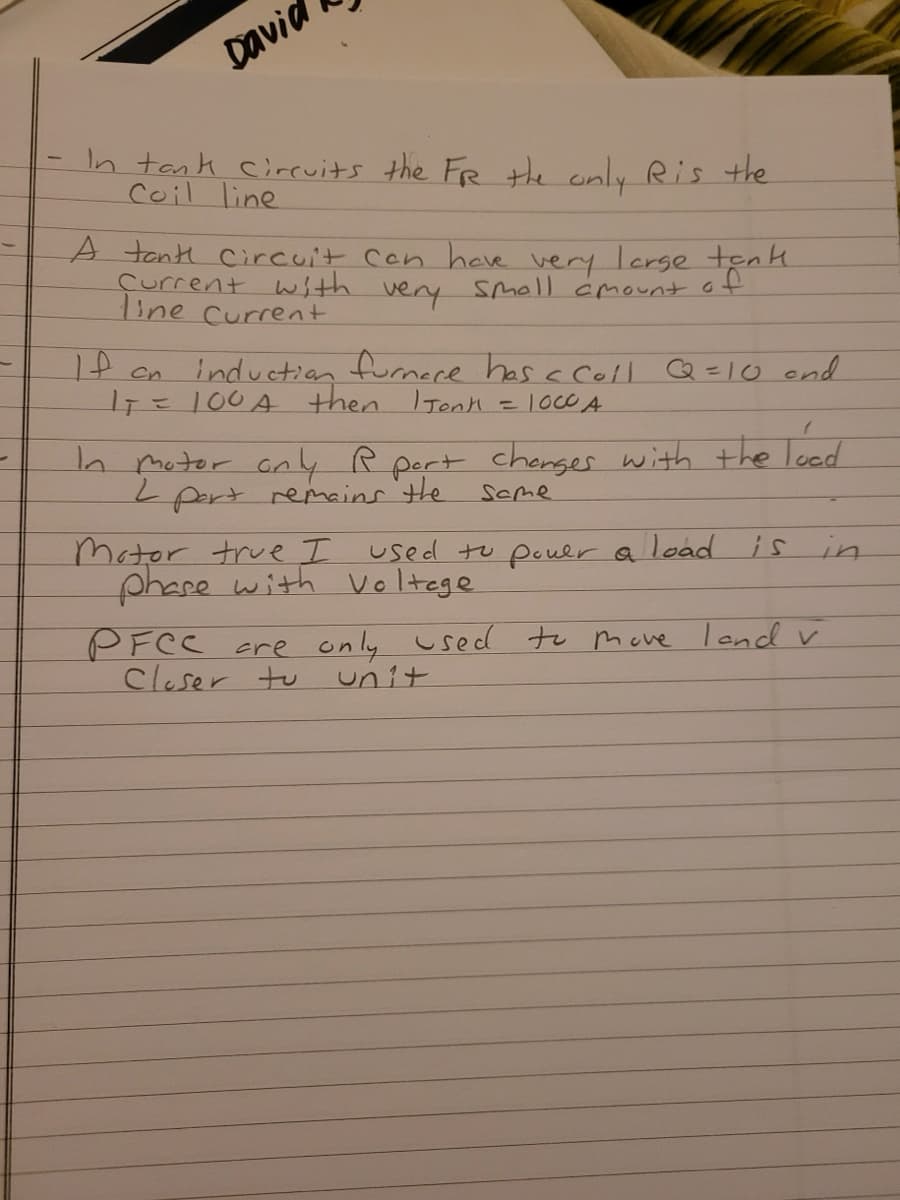 David
- In tank circuits the FR the only R is the
coil line
- A tank circuit can have very large tank
current with very small amount of
line current
- If an induction furnace has a coil Q = 10 and
IT = 100 A then ITank = 1000 A
- In motor only R part changes with the load
L part remains the same
Motor true I used to power a load is in
phase with voltage
PFCC are only used to move
closer to unit